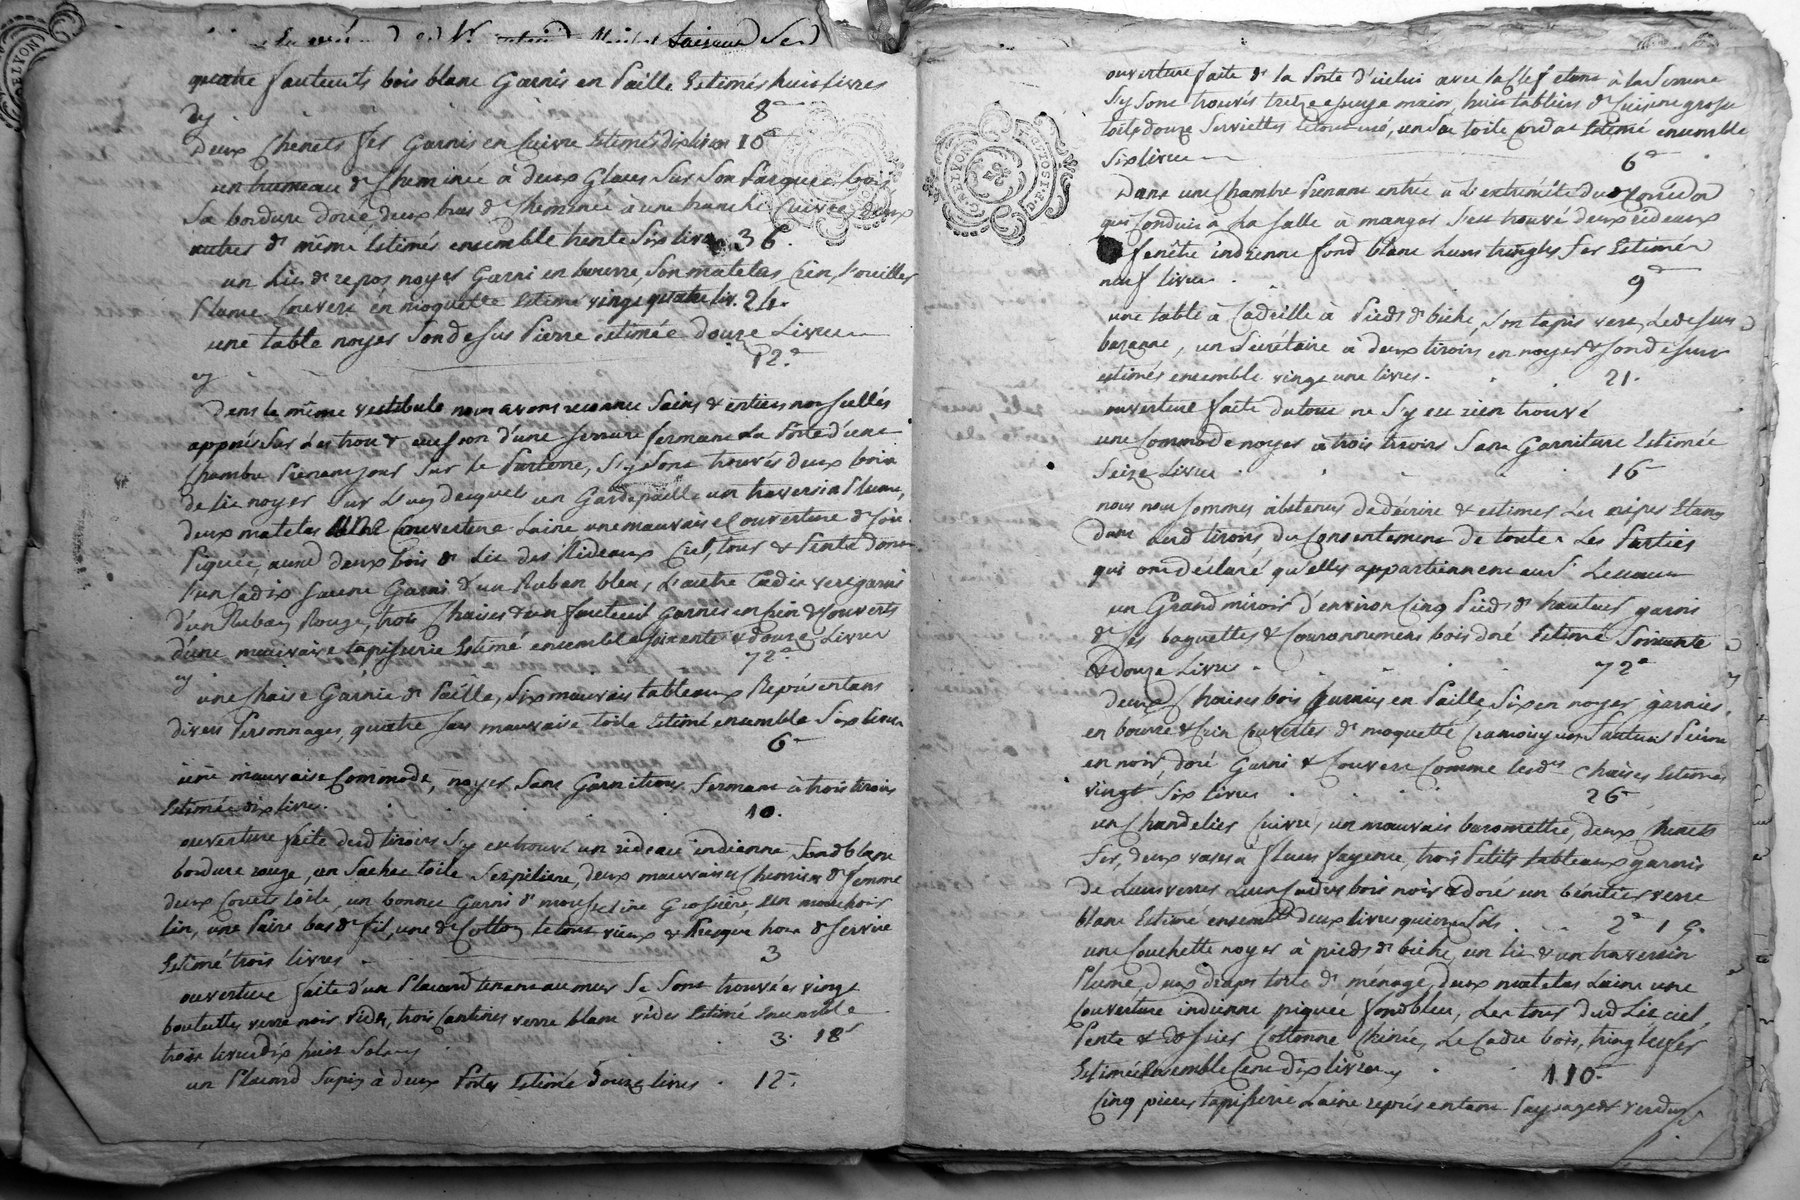 quatre fauteuils bois blanc Garnis en Paille Estimés huit livres
cy 8
Deux Chenets fer Garnis en Cuivre Estimés dix livres 10
un trumeau de Cheminée à deux Glaces Sur Son Parquet bois
Sa bordure dorée deux bras de Cheminée à une branche Cuivre, deux
autres de même Estimés ensemble trente Six livres 36.
un Lit de repos noyer Garni en bourre, Son matelas Crin
Plume Couvert en moquette Estimé vingt quatre liv. 24.
une table noyer Son dessus Pierre estimée douze Livres
12
cy
Dans le même vestibule nous avons reconnu Sains & entiers nos scellés
apposés Sur Les trou & d'une serrure fermant La Porte d'une
Chambre Prenant jour Sur le Parterre, S'y Sont trouvés deux bois
de lit noyer Sur L'un desquels un Gardepaille un traversin Plume,
deux matelas une Couverture Laine une mauvaise Couverture de
Piquée, auxd deux bois de Lit des Rideaux Ciel, tour & Pente dont
l'un Cadix jaune Garni d'un Ruban bleu, L'autre Cadix vert garni
d'un Ruban Rouge, trois Chaises & un fauteuil Garnis en Crin & Couverts
d'une mauvaise tapisserie Estimé ensemble Soixante & douze Livres
cy 72
une Chaise Garnie de Paille, Six mauvais tableaux Représentans
divers Personnages, quatre Sacs mauvaise toile Estimé ensemble Six livres
6
une mauvaise Commode, noyer, Sans Garniture fermant à trois tiroirs
Estimée dix livres. 10.
ouverture faite desd tiroirs S'y est trouvé un rideau indienne fond blanc
bordure rouge, un Sachet toile Serpiliere, deux mauvaises Chemises de femme
deux toile, un bonnet Garni de mousseline Grossière, un mouchoir
lin, une Paire bas de fil, une de Cotton le tout vieux & Presque hors de Service
Estimé trois livres 3
ouverture faite d'un Placard tenant au mur Se Sont trouvées vingt
bouteilles verre noir vides, trois Cantines verre blanc vides Estimé Ensemble
trois livres dix huit Sols cy 3. 18
un Placard Sapin à deux Portes Estimé douze livres 12
ouverture faite de la Porte d'icelui avec la Clef étant à la Serrure
S'y Sont trouvés treize essuye main, huit tabliers de Cuisine grosse
toile douze Serviettes le tout usé, un Sac toile Estimé ensemble
Six livres 6
Dans une Chambre Prenant entrée à L'extrémité du Corridor
qui Conduit à La Salle à manger S'est trouvé deux rideaux
fenêtre indienne fond blanc Leurs tringles fer Estimés
neuf livres 9
une table à Cadrille à Pieds de biche, Son tapis vert, Le dessus
bazanne, un Secrétaire à deux tiroirs en noyer & Son dessus
estimés ensemble vingt une livres. 21.
ouverture faite du tout ne S'y est rien trouvé
une Commode noyer à trois tiroirs Sans Garniture Estimée
Seize Livres 16
nous nous Sommes abstenus de décrire & estimer Les nipes Etans
Dans Lesd tiroirs du Consentement de toutes Les Parties
qui ont déclaré qu'elles appartiennent au Sr
un Grand miroir d'environ Cinq Pieds de hauteur garni
de Ses baguettes & Couronnement bois doré Estimé Soixante
& douze Livres 72
deux Chaises bois Garnies en Paille Six en noyer garnies
en bourre & Crin Couvertes de moquette Cramoisy un Fauteuil Peint
en noir, doré Garni & Couvert Comme lesdes Chaises Estimés
vingt Six livres 26
un Chandelier Cuivre, un mauvais baromettre, deux Chenets
fer, deux vases à fleur fayence, trois Petits tableaux garnis
de Leurs verres Leurs Cadres bois noir & dorés un bénitier verre
blanc Estimé ensemble deux livres quinze Sols 2 15.
une Couchette noyer à pieds de biche, un lit & un traversin
Plume, deux draps toile de ménage, deux matelas Laine une
Couverture indienne piquée fond bleu, Les tour dud Lit ciel,
Pente & dossier Cottonne Chinée, Le Cadre bois, tringles fer
Estimés Ensemble Cent dix livres 110
Cinq pieces tapisserie Laine représentant Paysage & verdure